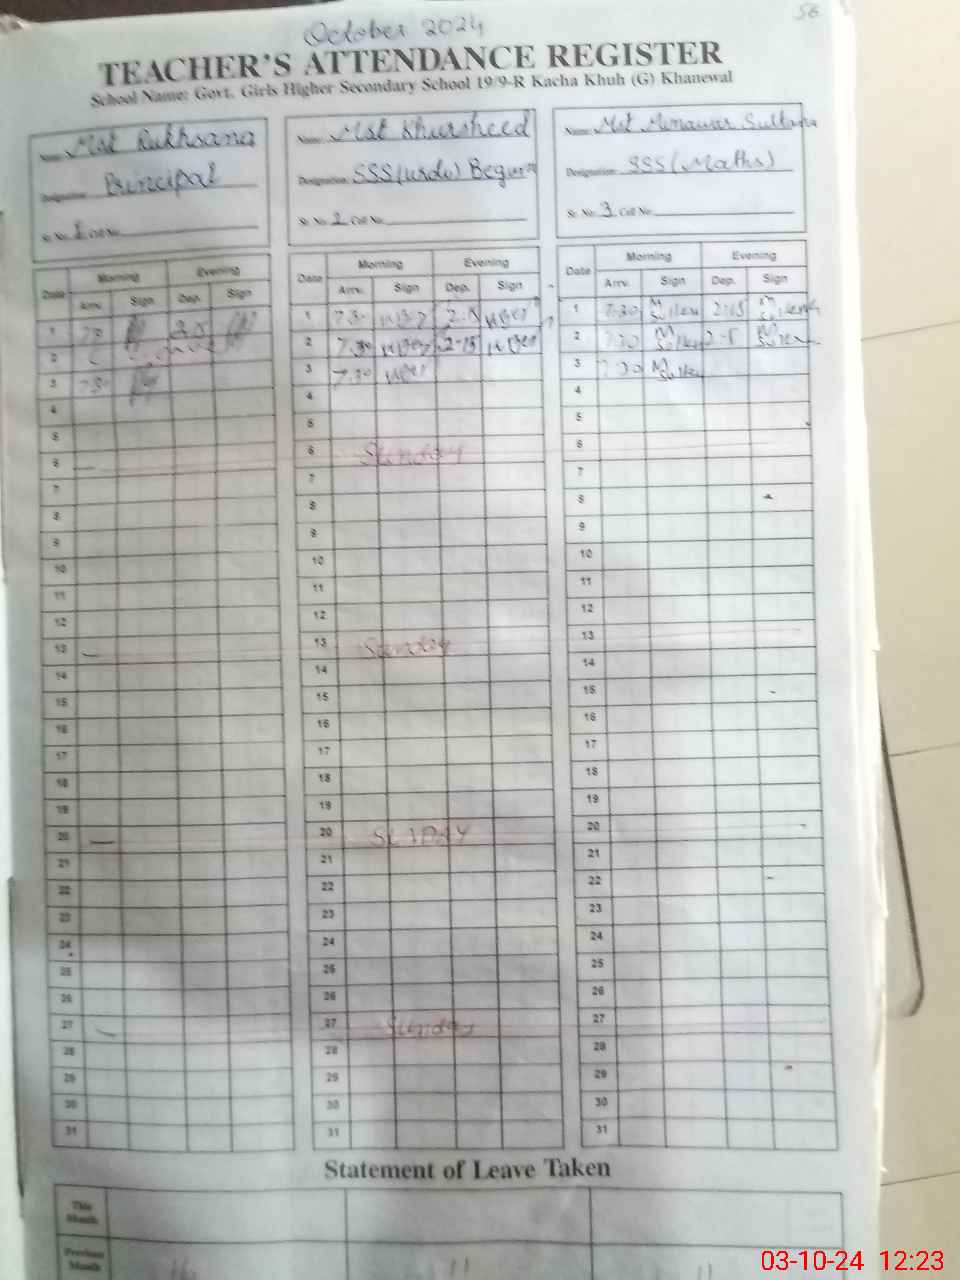 56
October 2024
TEACHER'S ATTENDANCE REGISTER
School Name: Govt. Girls Higher Secondary School 19/9-R Kacha Khuh (G) Khanewal
Name: Mst Rukhsana
Designation: Principal
Sr. No. 1 Cell No.
Name: Mst Khursheed
Designation: SSS(urdu) Begum
Sr. No. 2 Cell No.
Name: Mst Munawar Sultana
Designation: SSS(Maths)
Sr. No. 3 Cell No.
Date Morning Evening
Arrv. Sign Dep. Sign
1
2
3 7.30
4
5
6
7
8
9
10
11
12
13
14
15
16
17
18
19
20
21
22
23
24
25
26
27
28
29
30
31
Date Morning Evening
Arrv. Sign Dep. Sign
1 7.30
2 7.30 2-15
3 7.30
4
5
6 Sunday
7
8
9
10
11
12
13 Sunday
14
15
16
17
18
19
20 SUNDAY
21
22
23
24
25
26
27 Sunday
28
29
30
31
Date Morning Evening
Arrv. Sign Dep. Sign
1 7.30 2-15
2 7.30
3 7.30
4
5
6
7
8
9
10
11
12
13
14
15
16
17
18
19
20
21
22
23
24
25
26
27
28
29
30
31
Statement of Leave Taken
This Month
Previous Month
03-10-24 12:23